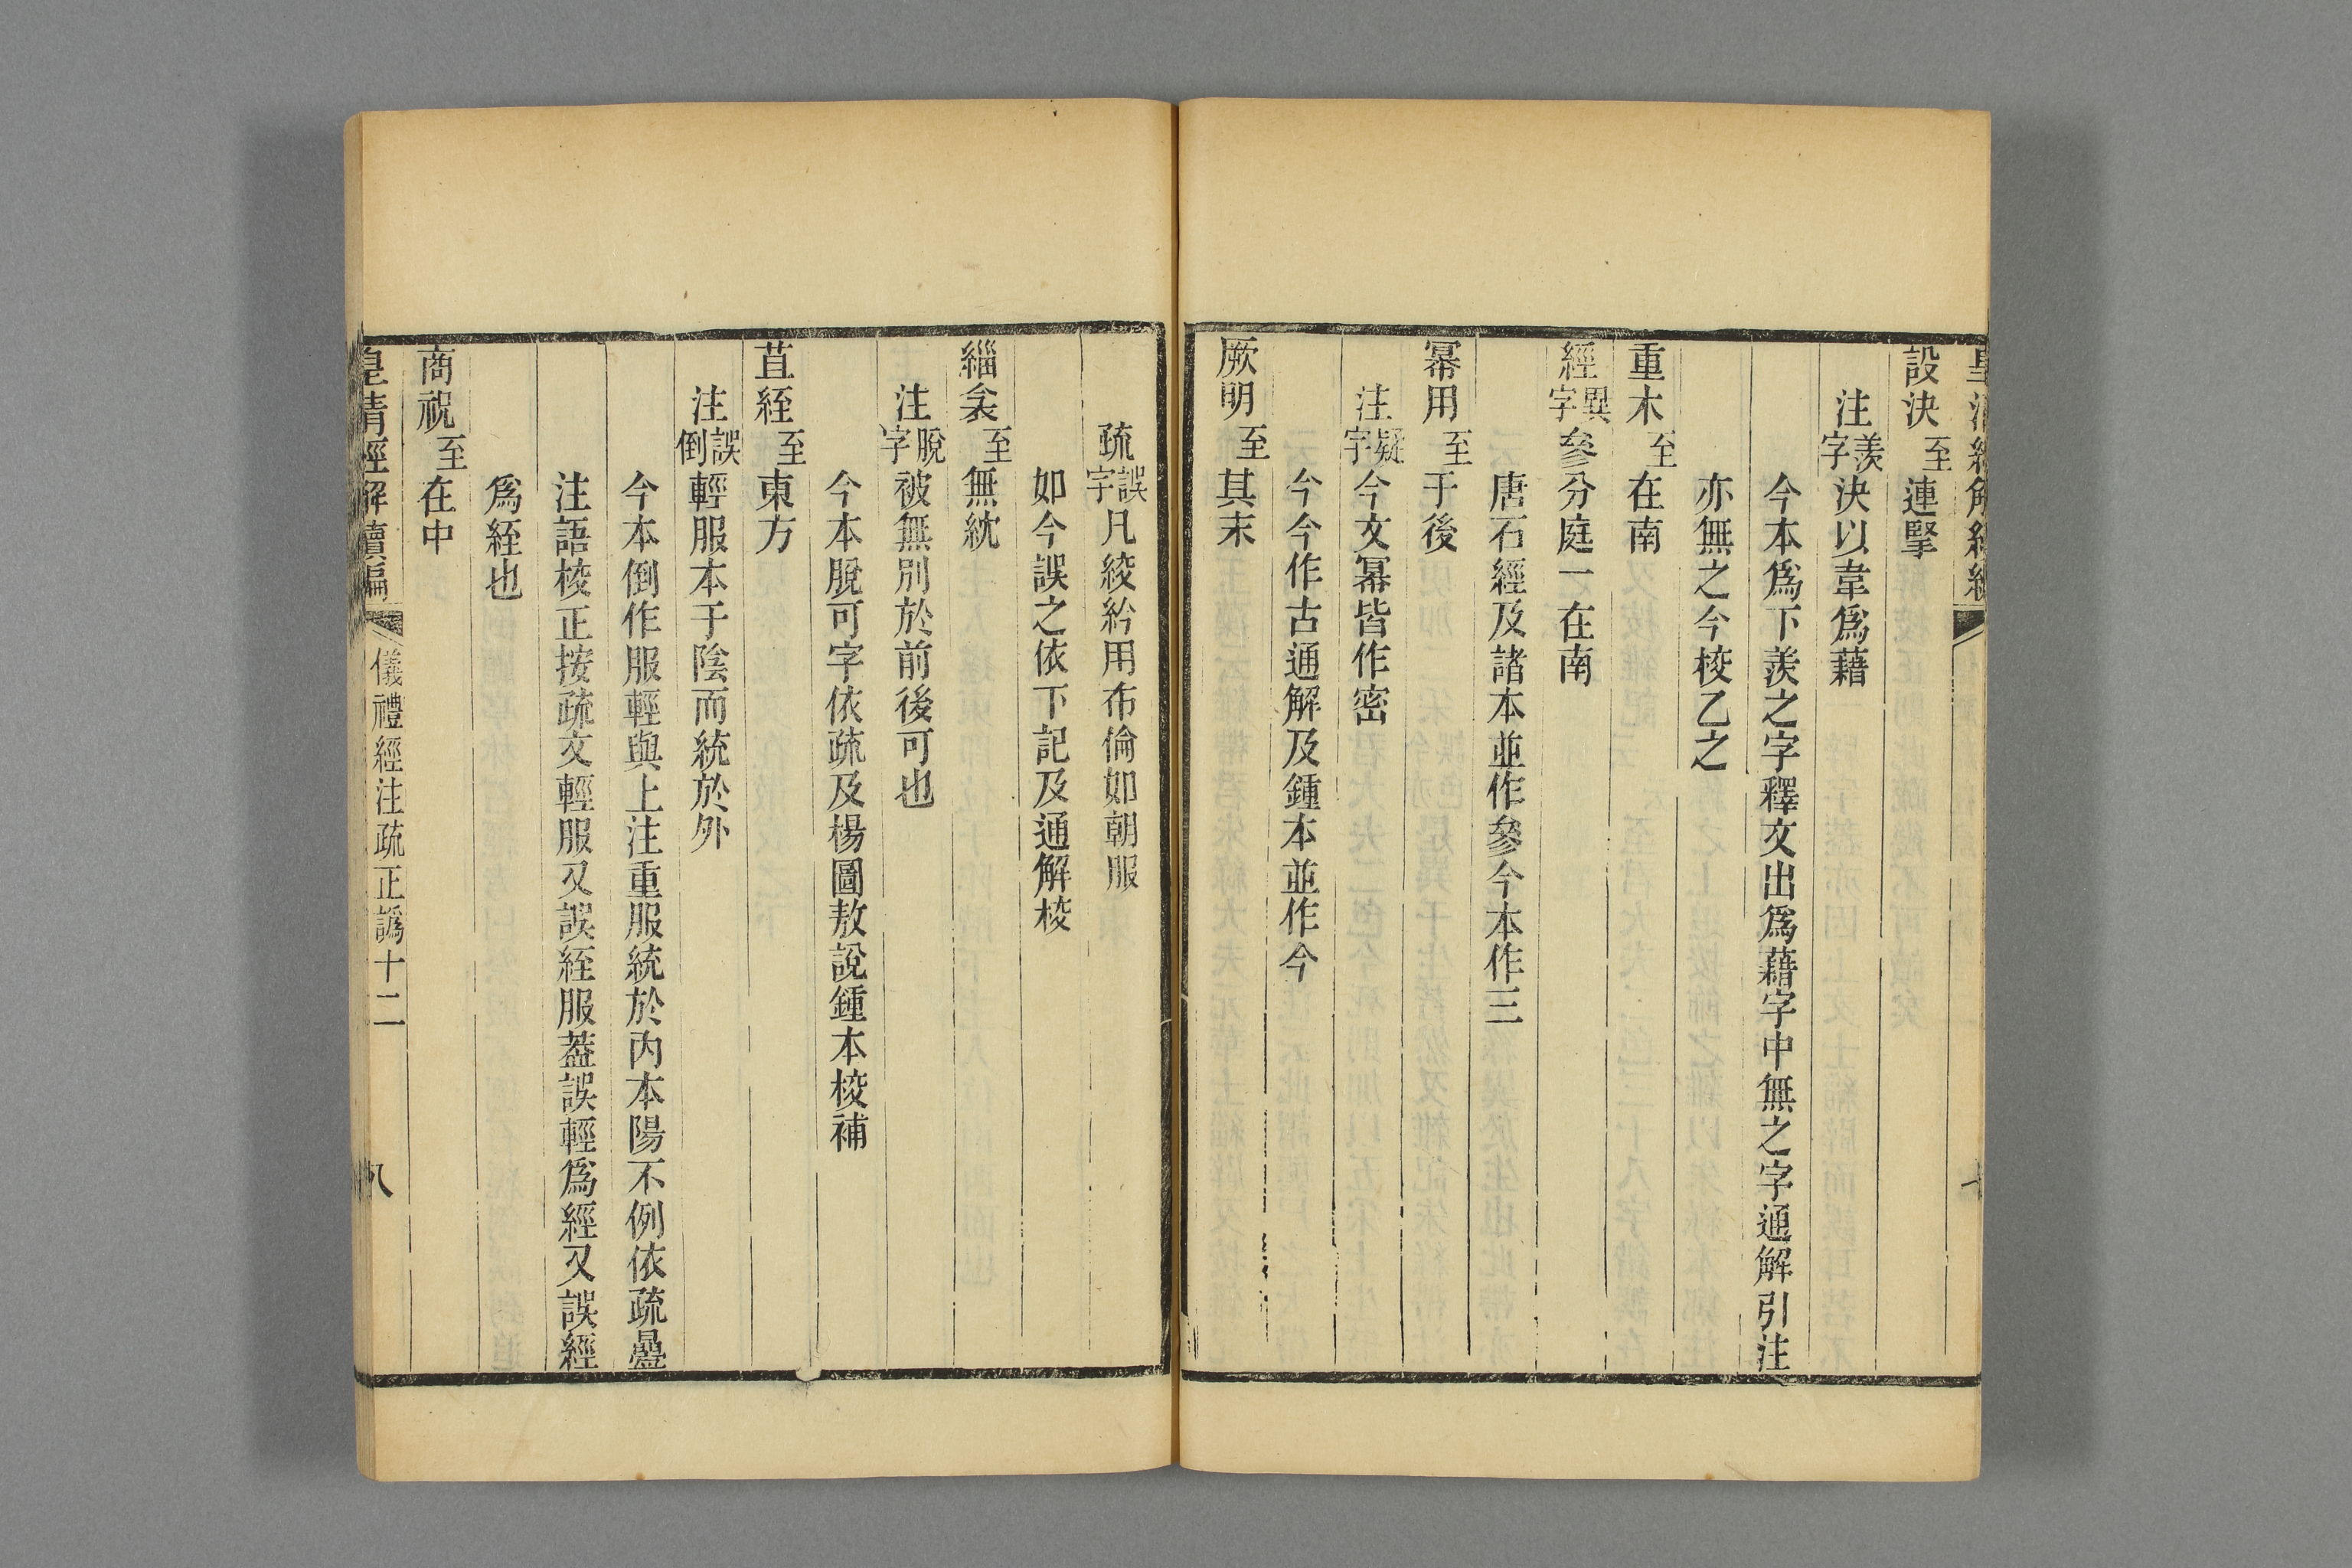 設決至連掔
注羨字決以韋爲藉
今本爲下羨之字釋文出爲藉字中無之字通解引注
亦無之今校乙之
重木至在南
經異字參分庭一在南
唐石經及諸本並作參今本作三
冪用至于後
注疑字今文冪皆作密
今今作古通解及鍾本並作今
厥明至其末
疏誤字凡絞紟用布倫如朝服
如今誤之依下記及通解校
緇衾至無紞
注脫字被無別於前後可也
今本脫可字依疏及楊圖敖說鍾本校補
苴絰至東方
注誤倒輕服本于陰而統於外
今本倒作服輕與上注重服統於內本陽不例依疏疊
注語校正按疏文輕服又誤絰服蓋誤輕爲經又誤經
爲絰也
商祝至在中
皇清經解續編
儀禮經注疏正譌十二
八